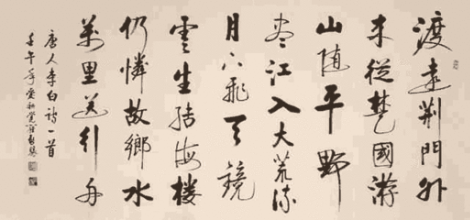 渡遠荆門外
来從楚國游
山隨平野
盡江入大荒流
月下飛天鏡
雲生結海樓
仍憐故鄉水
萬里送行舟
唐人李白詩一首
壬午 愛新覺羅